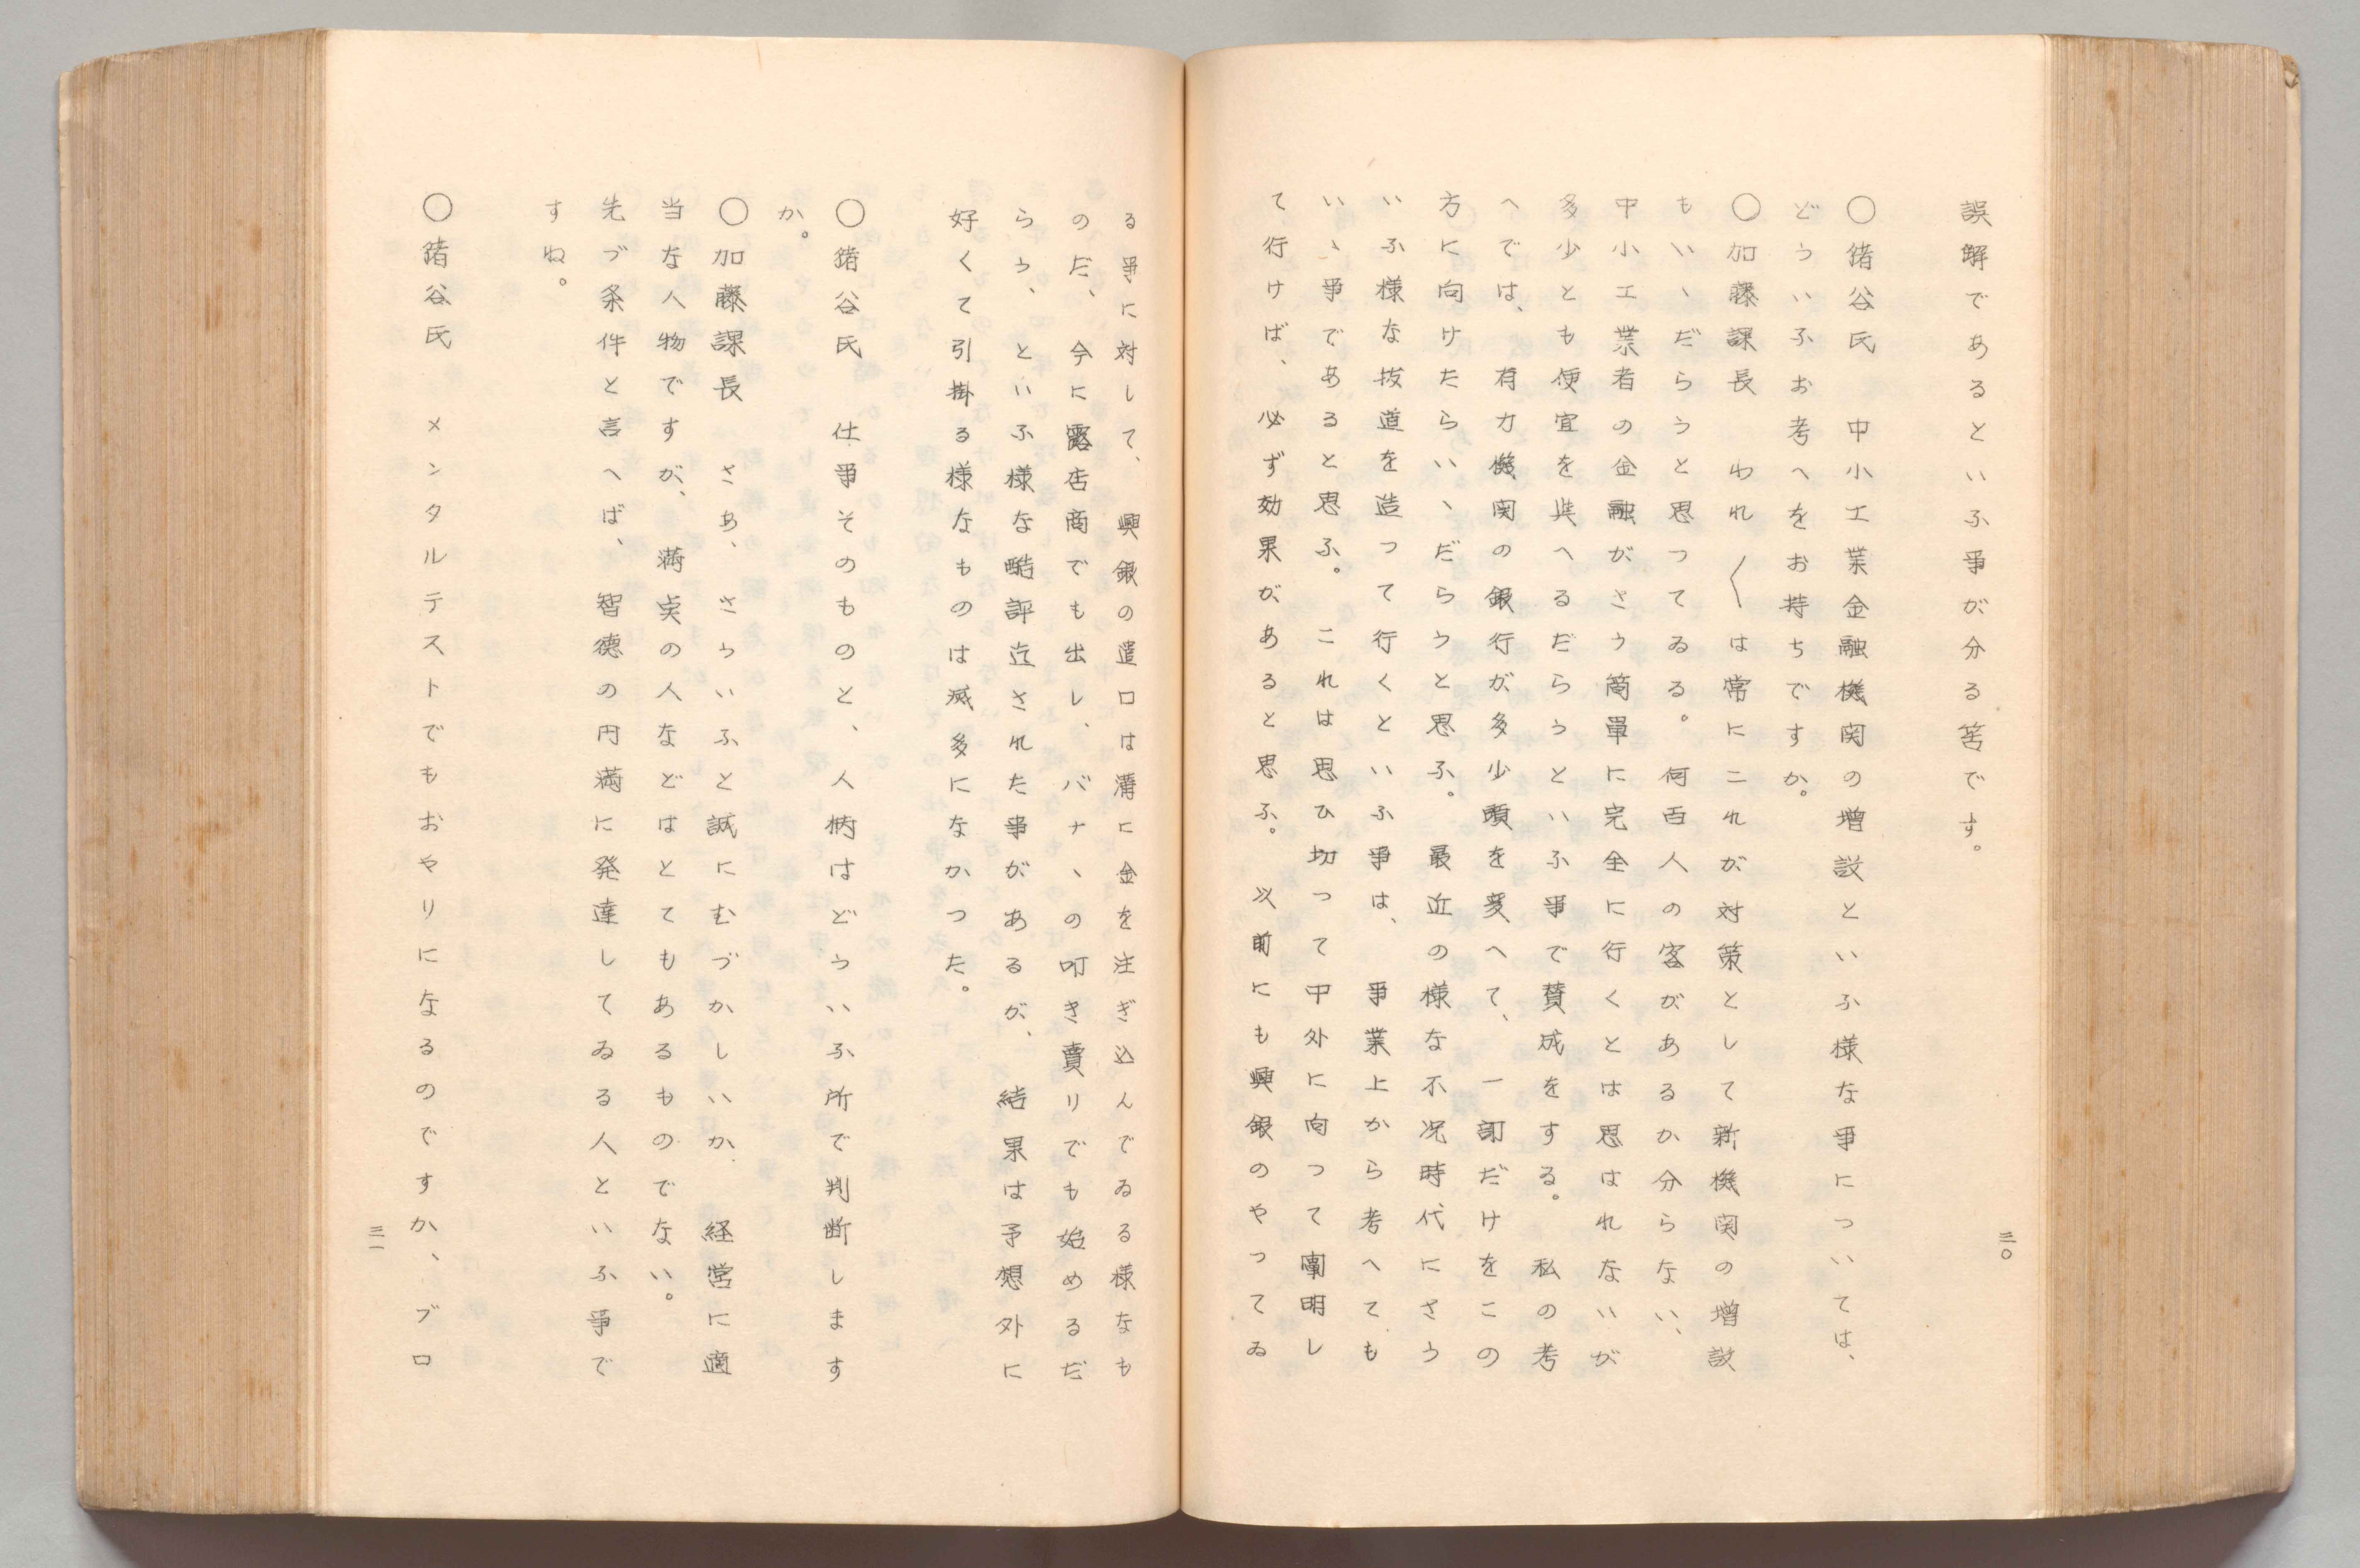 誤解であるといふ事が分る筈です。
〇猪谷氏　中小工業金融機関の増設といふ様な事については、
どういふお考へをお持ちですか。
〇加藤課長　われ〱は常にこれが対策として新機関の増設
もいゝだらうと思ってゐる。何百人の客があるか分らない、
中小工業者の金融がさう簡單に完全に行くとは思はれないが
多少とも便宜を与へるだらうといふ事で賛成をする。私の考
へでは、有力機関の銀行が多少頭を変へて、一割だけをこの
方に向けたらいゝだらうと思ふ。最近の様な不況時代にさう
いふ様な抜道を造って行くといふ事は、事業上から考へても
いゝ事であると思ふ。これは思ひ切って中外に向って闡明し
て行けば、必ず効果があると思ふ。以前にも興銀のやってゐ
三〇
る事に対して、興銀の遣口は溝に金を注ぎ込んでゐる様なも
のだ、今に露店商でも出し、バナヽの叩き賣りでも始めるだ
らう、といふ様な酷評迄された事があるが、結果は予想外に
好くて引掛る様なものは滅多になかった。
〇猪谷氏　仕事そのものと、人柄はどういふ所で判断します
か。
〇加藤課長　さあ、さういふと誠にむづかしいが、経営に適
当な人物ですが、満点の人などはとてもあるものでない。
先づ条件と言へば、智徳の円満に発達してゐる人といふ事で
すね。
〇猪谷氏　メンタルテストでもおやりになるのですか、ブロ
三一